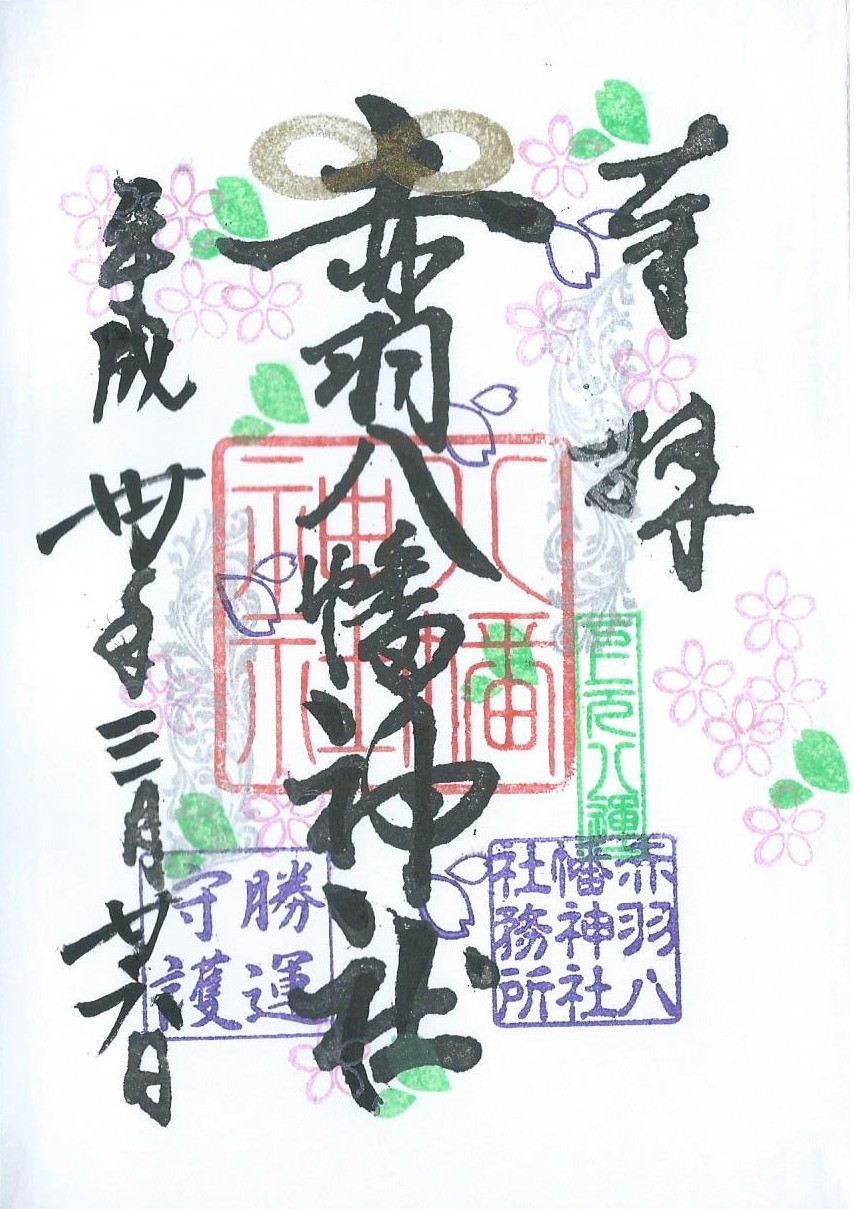 奉拝
赤羽八幡神社
平成卅年三月廿六日
八幡
神社
赤羽八
幡神社
社務所
勝運
守護